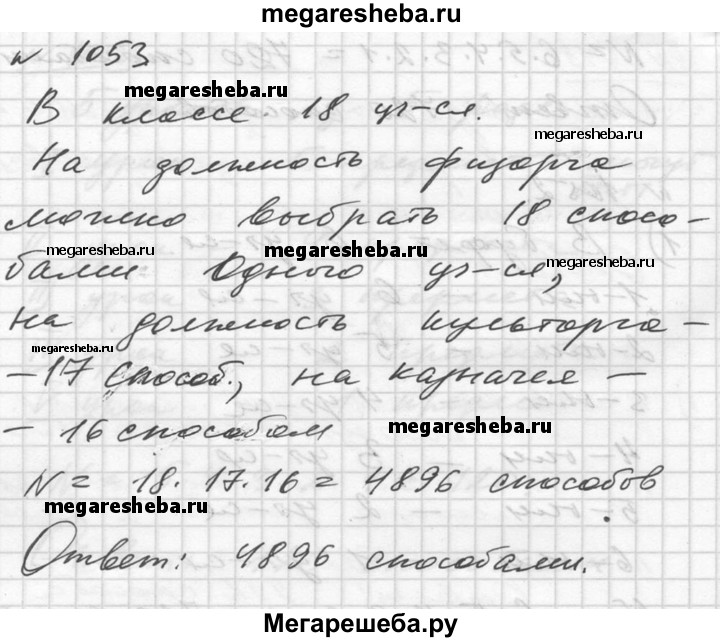 megaresheba.ru
№ 1053
megaresheba.ru
В классе 18 уч-ся.
megaresheba.ru
На должность физорга
можно выбрать 18 спосо-
megaresheba.ru megaresheba.ru megaresheba.ru
бами одного уч-ся,
на должность культорга -
megaresheba.ru megaresheba.ru
- 17 способ., на казначея -
- 16 способам
megaresheba.ru
N = 18 · 17 · 16 = 4896 способов
megaresheba.ru
Ответ: 4896 способами.
Мегарешеба.ру